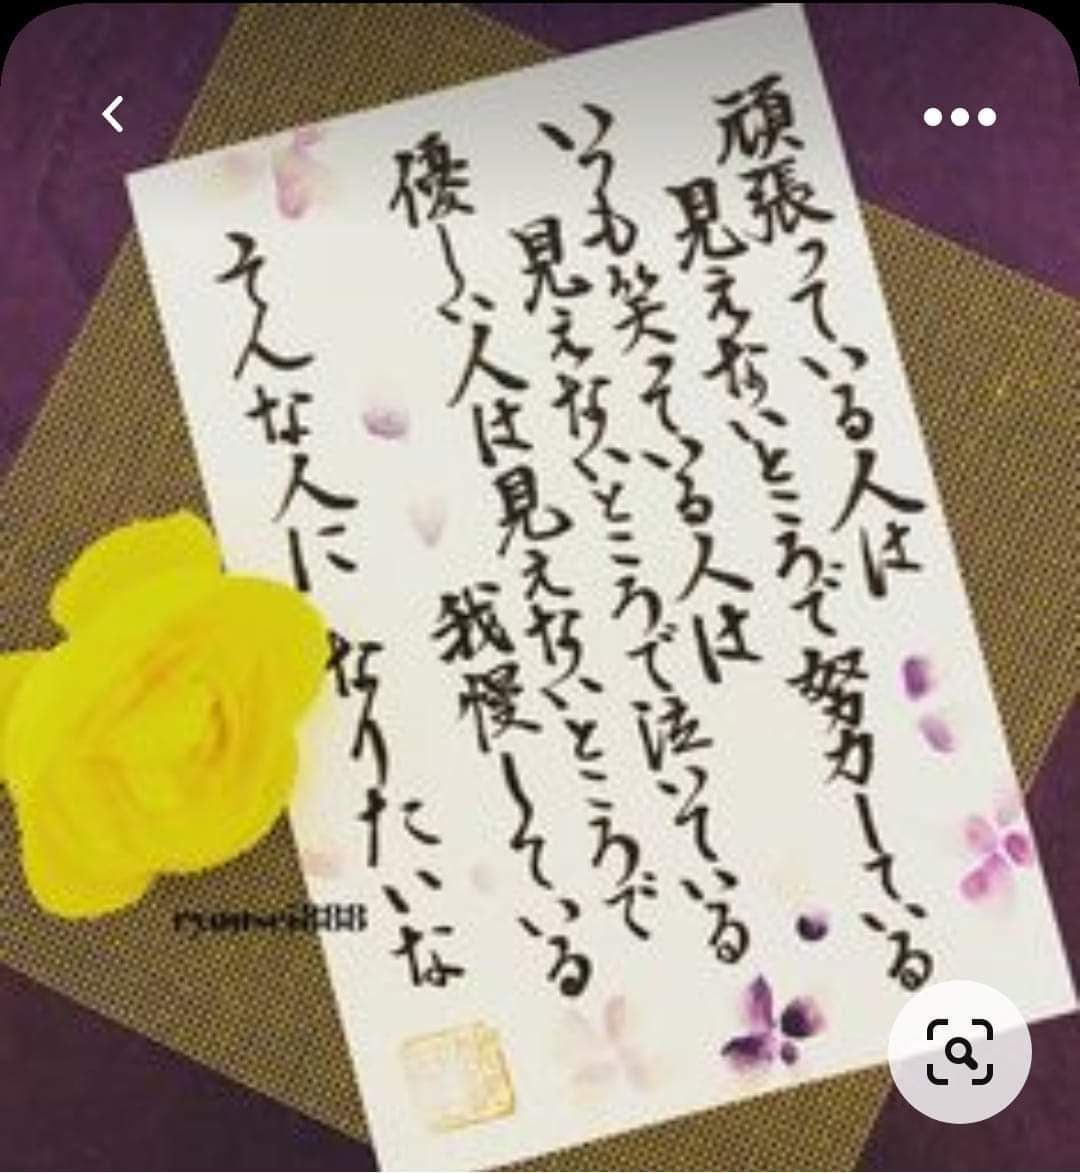 頑張っている人は
見えないところで努力している
いつも笑っている人は
見えないところで泣いている
優しい人は見えないところで
我慢している
そんな人に
なりたいな